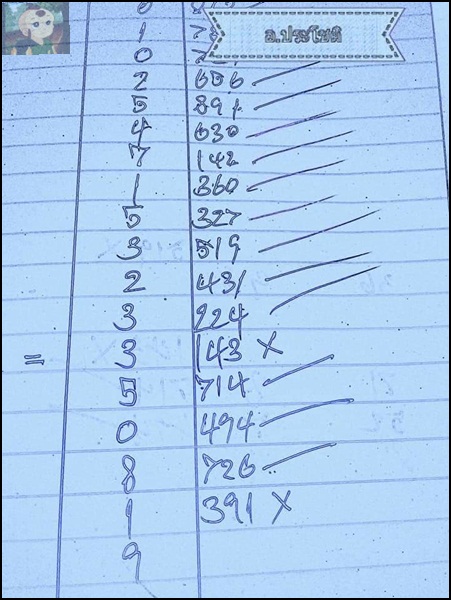 อ.ประโยชน์
1
0
2 656
5 891
4 630
7 142
1 360
5 327
3 519
2 431
3 924
= 3 143 X
5 714
0 494
8 726
1 391 X
9